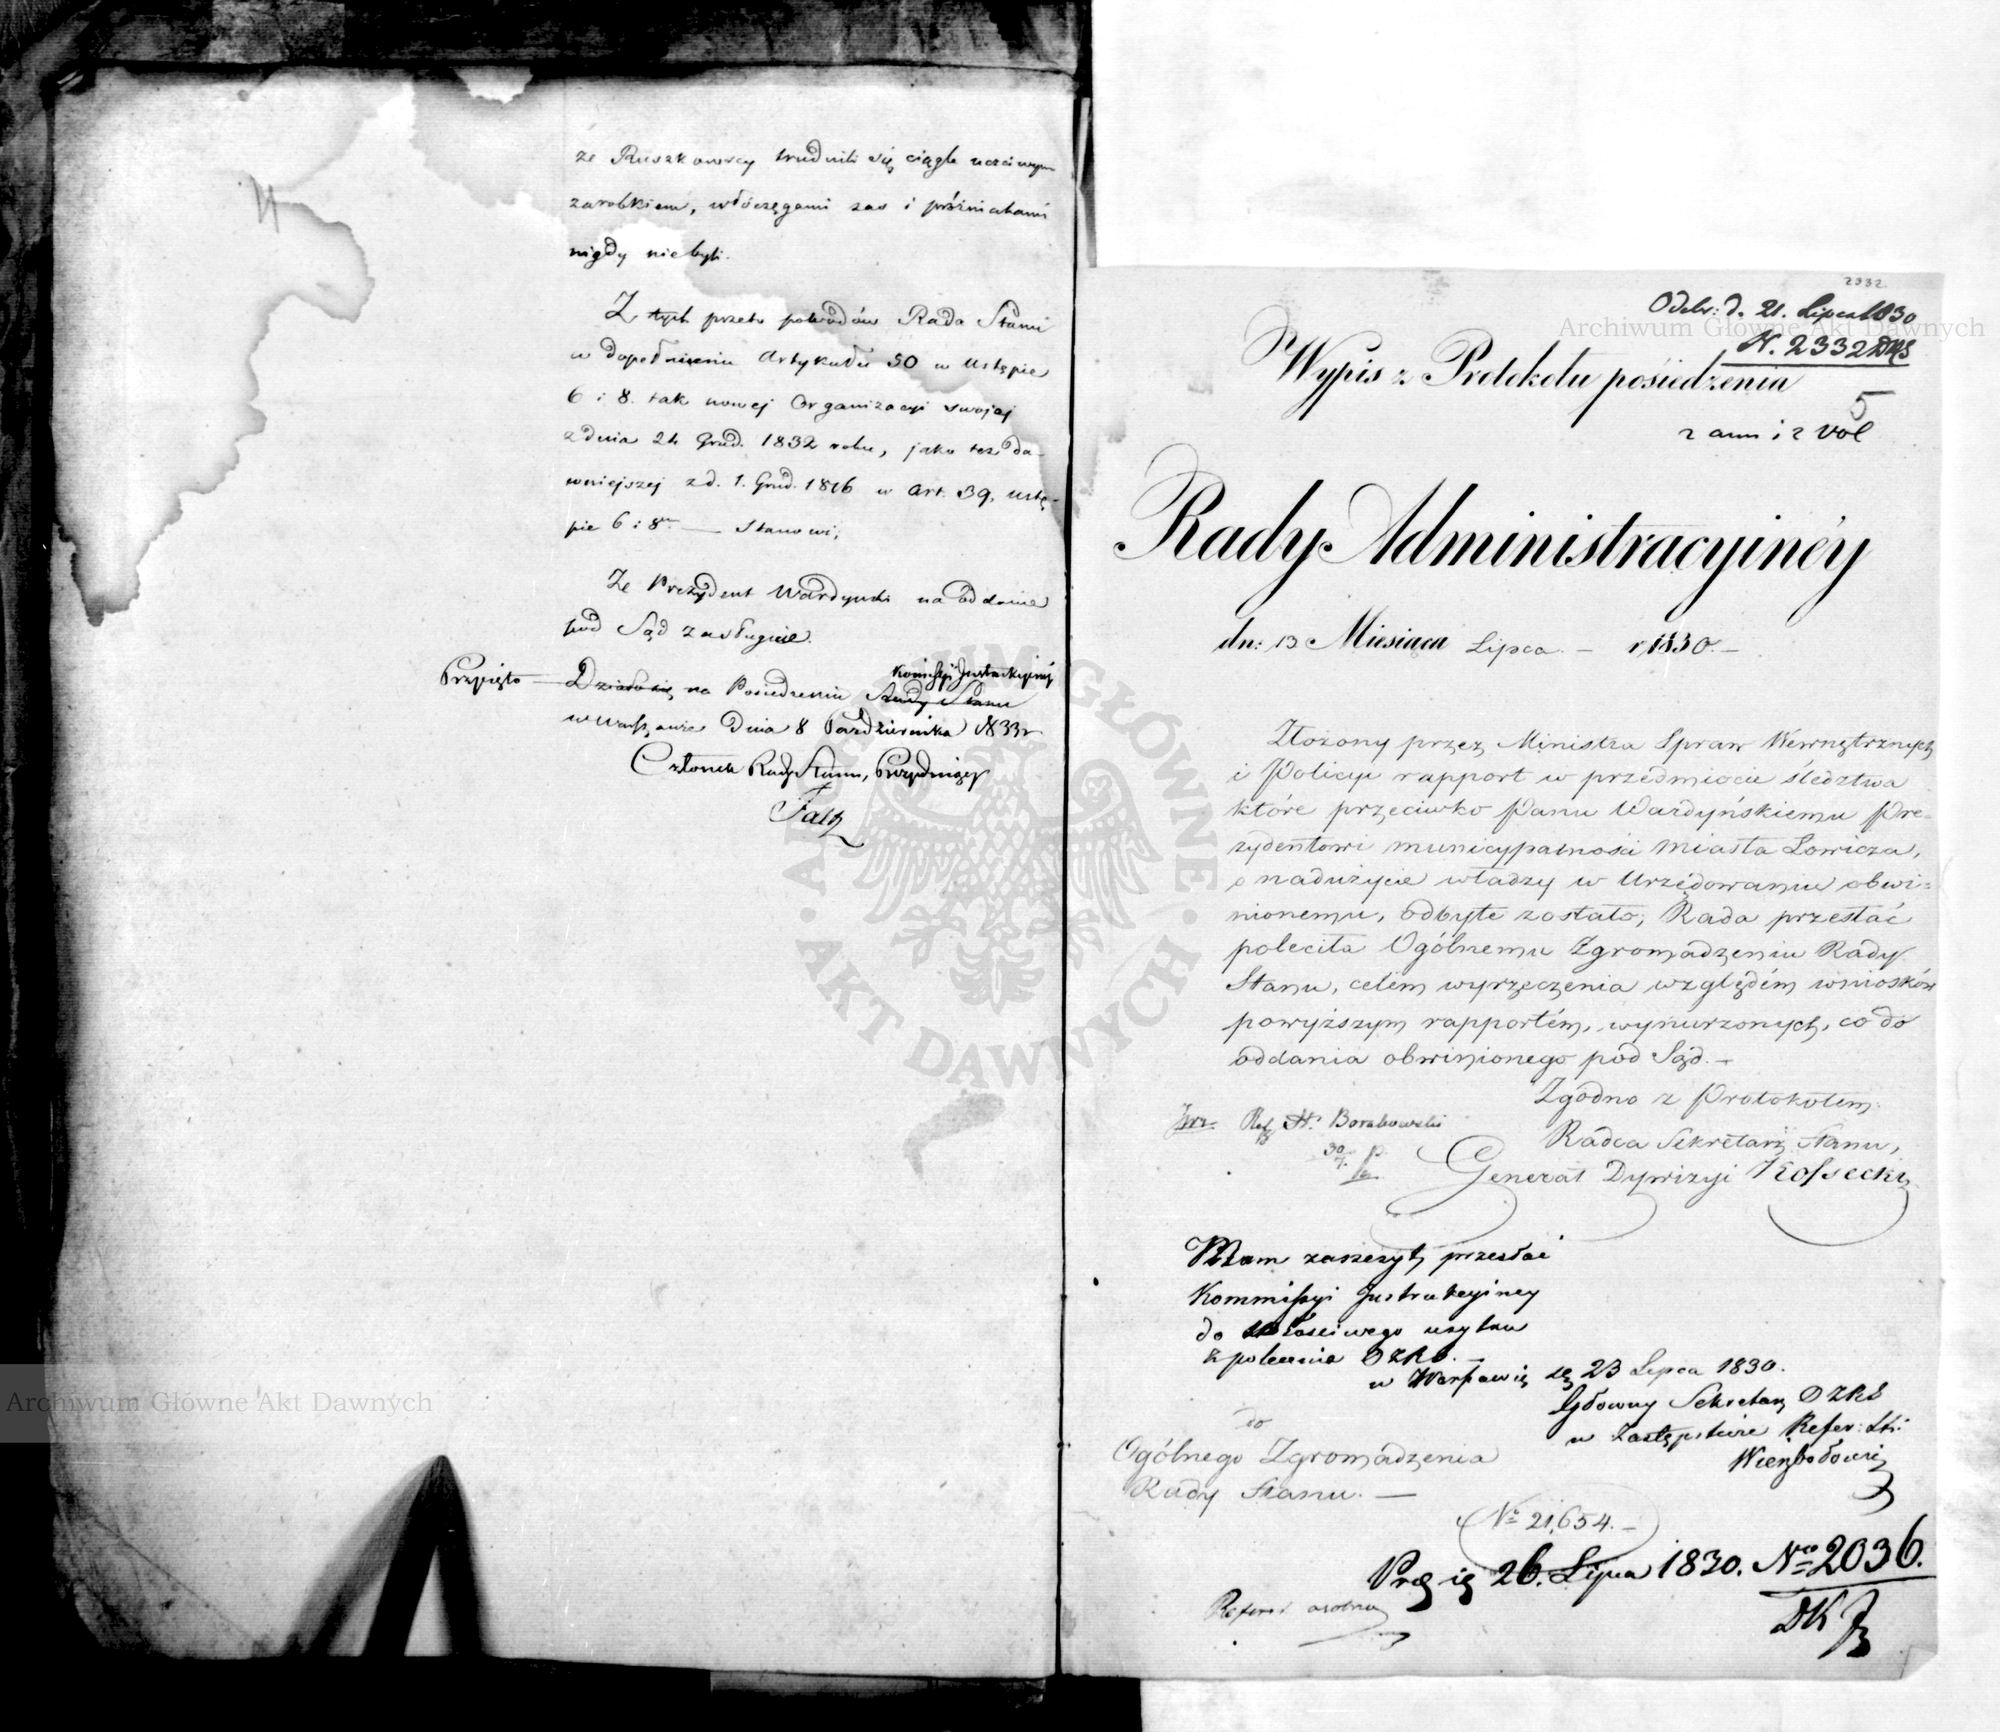 że Ruszkowscy trudnili się ciągle uczciwym
zarobkiem, włóczęgami zas i próżniakami
nigdy niebyli.
Z tych przeto powodów Rada Stanu
w dopełnieniu Artykułu 30 w Ustępie
6 i 8. tak nowej Organizacyi swojej
z dnia 24 Grud. 1832 roku, jako też da-
wniejszej z d. 1. Grud. 1816 w Art. 39, ustę-
pie 6 i 8m — Stanowi;
Że Prezydent Wardyński na oddanie
pod Sąd zasługuie.
Przyięto — Działo się na Posiedzeniu Rady Stanu Kommissyi Instrukcyiney
w Warszawie Dnia 8 Października 1833 r
Członek Rady Stanu, Prezyduiący
Faltz
2332.
Odebr: d. 21. Lipca 1830
N. 2332
Wypis z Protokołu posiedzenia
5
2 ann i 2 Vol
Rady Administracyinéy
dn: 13 Miesiąca Lipca. — r. 1830. —
Złożony przez Ministra Spraw Wewnętrznych
i Policyi rapport w przedmiocie śledztwa
które przeciwko Panu Wardyńskiemu Pre-
zydentowi municypalności Miasta Łowicza,
o nadużycie władzy w Urzędowaniu obwi-
nionemu, odbyte zostało, Rada przesłać
poleciła Ogólnemu Zgromadzeniu Rady
Stanu, celem wyrzeczenia względem wniosków
powyższym rapportem, wynurzonych, co do
oddania obwinionego pod Sąd. —
Zgodno z Protokołem:
Radca Sekretarz Stanu,
Generał Dywizyi Kossecki
Ref. St. Borakowski
30/7.
Mam zaszczyt przesłać
Kommissyi Instrukcyiney
do właściwego użytku
z polecenia OZRS. —
w Warszawie dę 23 Lipca 1830.
Główny Sekretarz OZRS
w Zastępstwie Refer: St:
Wierzbołowicz
do
Ogólnego Zgromadzenia
Rady Stanu. —
No 21,654. —
26. Lipca 1830. Nro 2036.
DK
Referent
Archiwum Główne Akt Dawnych
Archiwum Główne Akt Dawnych
ARCHIWUM GŁÓWNE · AKT DAWNYCH ·